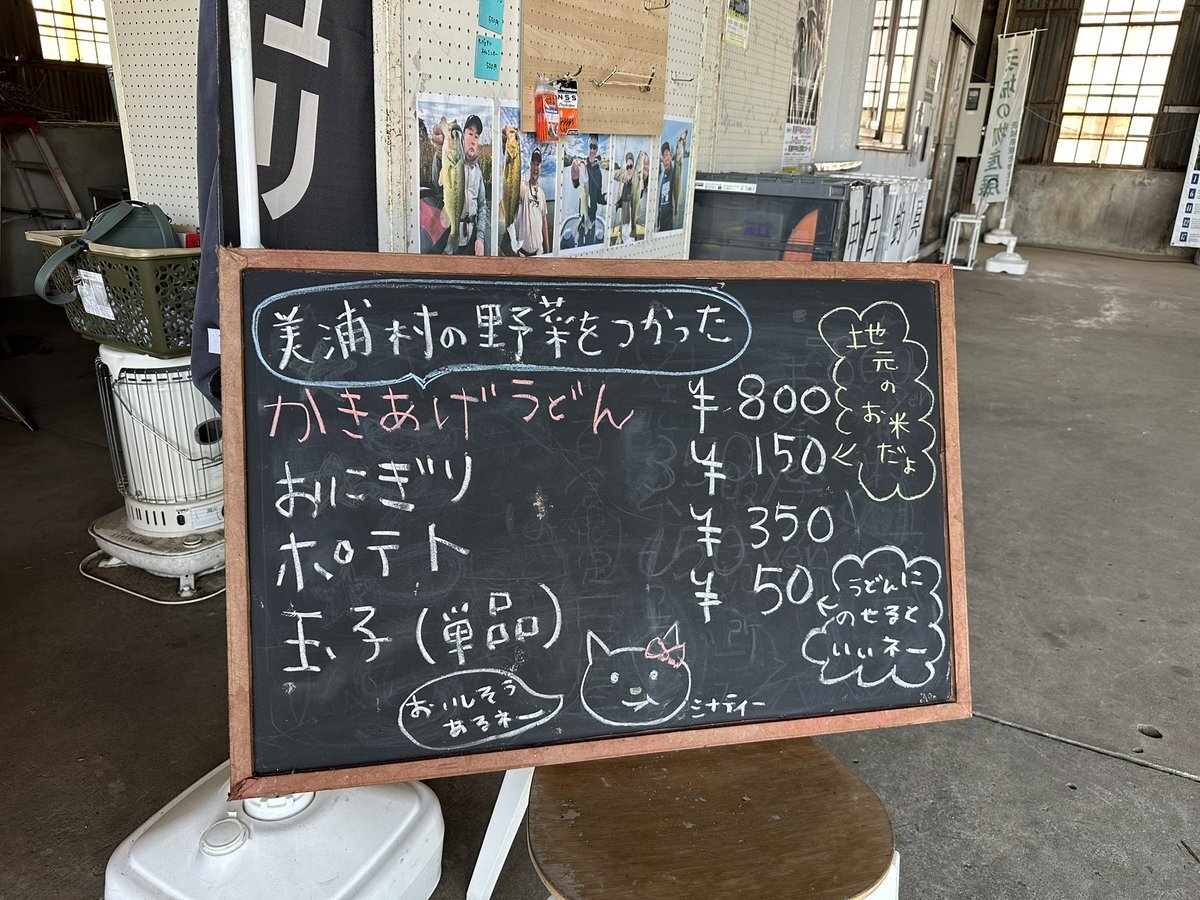 美浦村の野菜をつかった
かきあげうどん ¥800
おにぎり ¥150
ポテト ¥350
玉子(単品) ¥50
地元の
お米
だよ
うどんに
のせると
いいネー
おいしそう
あるネー
ミナディー
500円
NSS
中古
の物産展